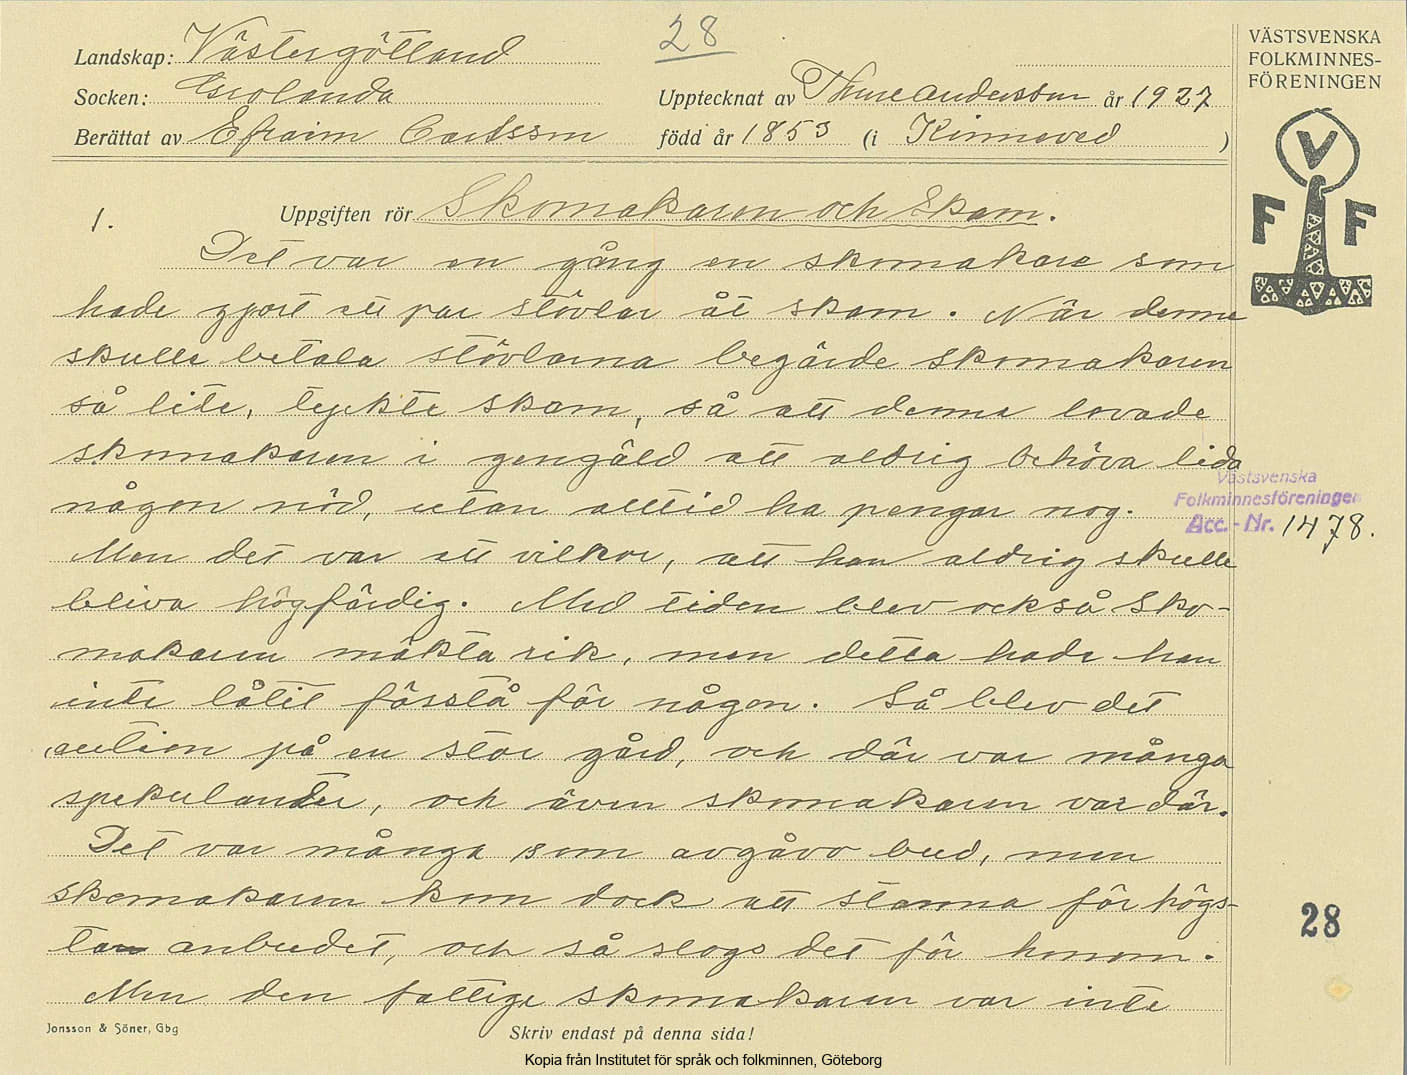 28
Landskap: Västergötland
Socken: Grolanda
Berättat av Efraim Carlsson
Upptecknat av Thure Andersson år 1927
född år 1853 (i Kinneved )
VÄSTSVENSKA
FOLKMINNES-
FÖRENINGEN
V
F F
1. Uppgiften rör Skomakaren och Skam.
Det var en gång en skomakare som
hade gjort ett par stövlar åt skam. När denne
skulle betala stövlarna begärde skomakaren
så lite, tyckte skam, så att denne lovade
skomakaren i gengäld att aldrig behöva lida
någon nöd, utan alltid ha pengar nog.
Västsvenska
Folkminnesföreningen
Acc.-Nr. 1478.
Men det var ett vilkor, att han aldrig skulle
bliva högfärdig. Med tiden blev också sko-
makaren mäkta rik, men detta hade han
inte låtit förstå för någon. Så blev det
auction på en stor gård, och där var många
spekulanter, och även skomakaren var där.
Det var många som avgåvo bud, men
skomakaren kom dock att stanna för högs-
ta anbudet, och så slogs det för honom.
Men den fattige skomakaren var inte
28
Jonsson & Söner, Gbg
Skriv endast på denna sida!
Kopia från Institutet för språk och folkminnen, Göteborg